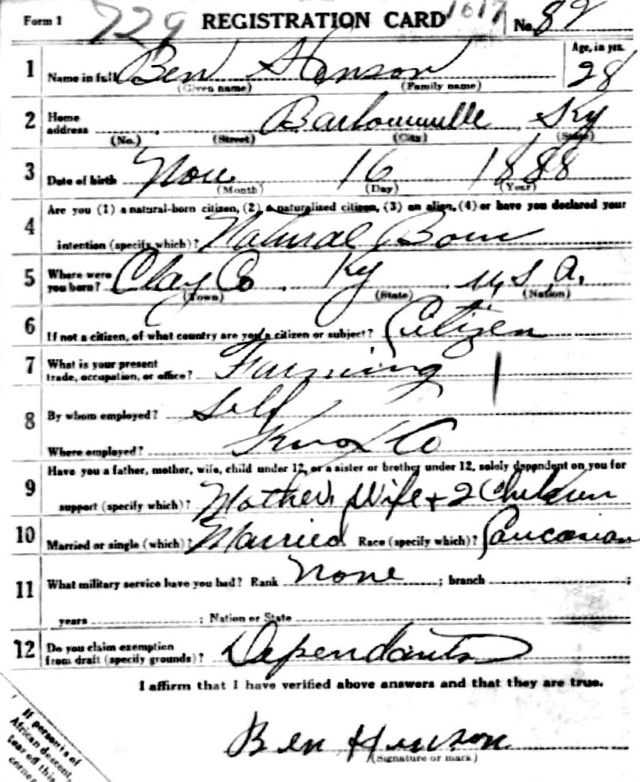 Form 1 729 REGISTRATION CARD 1017 No. 82
1 Name in full Ben Henson Age, in yrs. 28
(Given name) (Family name)
2 Home address Barbourville Ky
(No.) (Street) (City) (State)
3 Date of birth Nov 16 1888
(Month) (Day) (Year)
Are you (1) a natural-born citizen, (2) a naturalized citizen, (3) an alien, (4) or have you declared your
4 intention (specify which)? Natural Born
5 Where were you born? Clay Co Ky U.S.A.
(Town) (State) (Nation)
6 If not a citizen, of what country are you a citizen or subject? Citizen
7 What is your present trade, occupation, or office? Farming 1
8 By whom employed? Self
Where employed? Knox Co
Have you a father, mother, wife, child under 12, or a sister or brother under 12, solely dependent on you for
9 support (specify which)? Mother, Wife + 2 Children
10 Married or single (which)? Married Race (specify which)? Caucasian
11 What military service have you had? Rank None ; branch ;
years ; Nation or State
12 Do you claim exemption from draft (specify grounds)? Dependants
I affirm that I have verified above answers and that they are true.
Ben Henson
(Signature or mark)
If person is of
African descent,
tear off this
corner